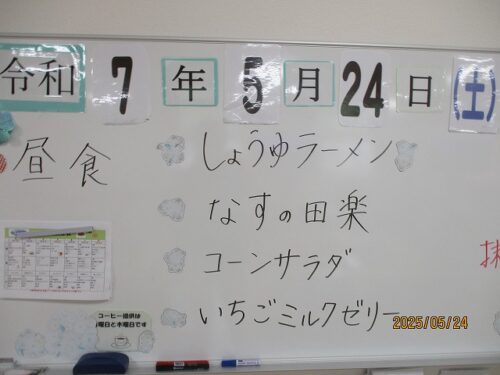 令和 7 年 5 月 24 日 (土)
昼食
しょうゆラーメン
なすの田楽
コーンサラダ
いちごミルクゼリー
抹
コーヒー提供は
曜日と木曜日です
2025/05/24